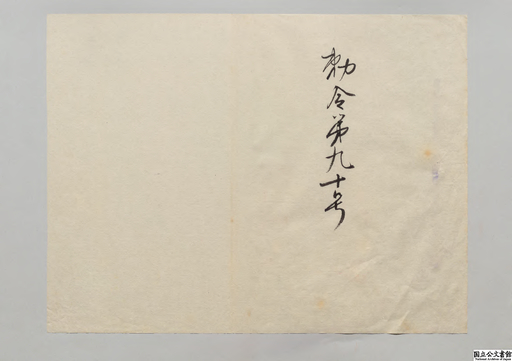 勅令第九十号
国立公文書館
National Archives of Japan